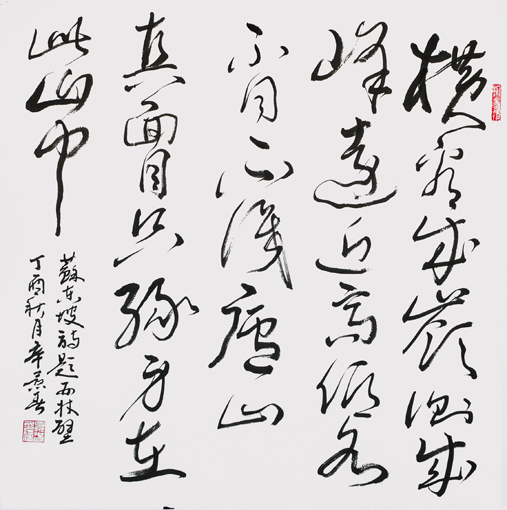 橫看成嶺側成
峰遠近高低各
不同不識廬山
真面目只緣身在
此山中
蘇東坡詩題西林壁
丁酉秋月